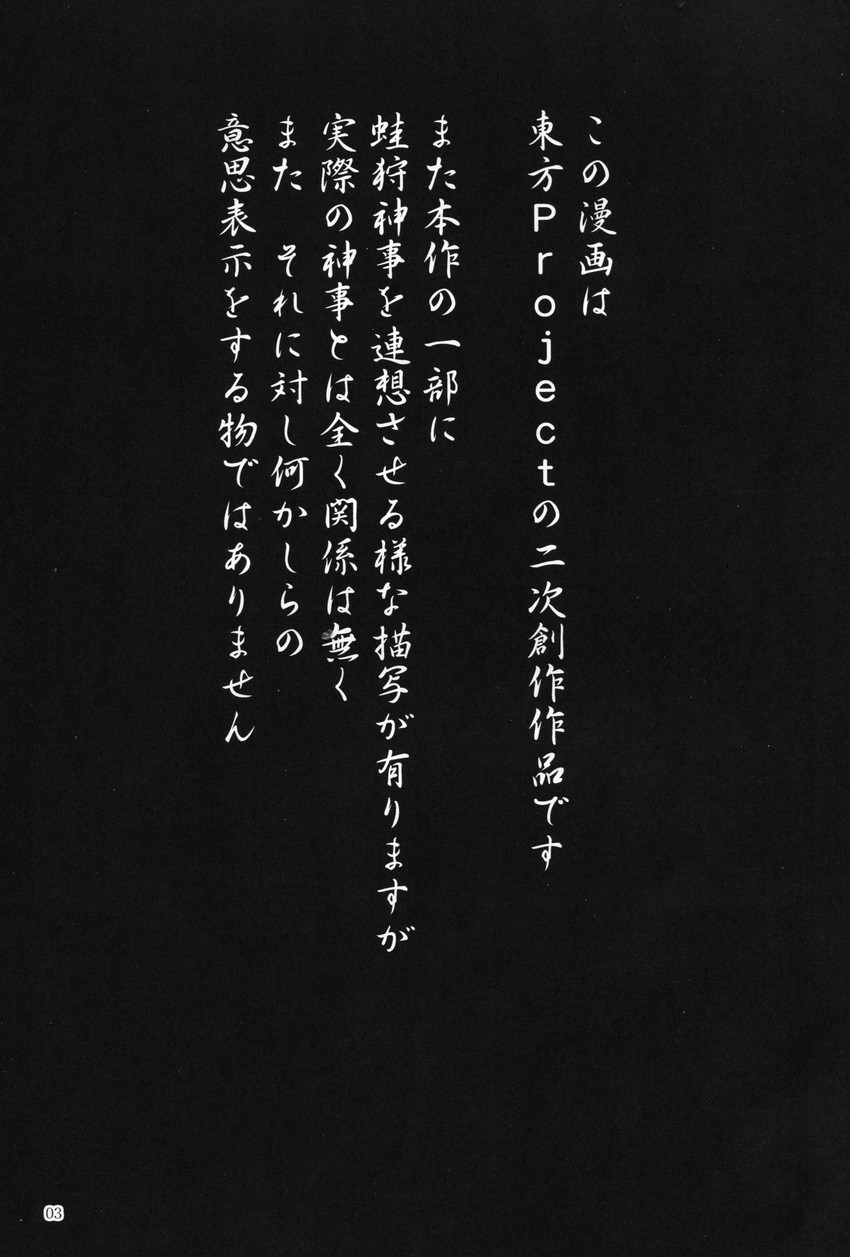 この漫画は
東方Projectの二次創作作品です
また本作の一部に
蛙狩神事を連想させる様な描写が有りますが
実際の神事とは全く関係は無く
また　それに対し何かしらの
意思表示をする物ではありません
03